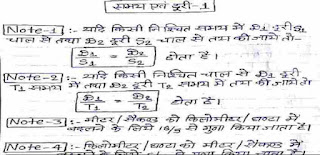 समय एवं दूरी-1
Note-1 :- यदि किसी निश्चित समय में D1 दूरी S1
चाल से तथा D2 दूरी S2 चाल से तय की जाये तो-
D1/S1 = D2/S2 होता है।
Note-2 :- यदि किसी निश्चित चाल से D1 दूरी
T1 समय में तथा D2 दूरी T2 समय में तय की जाये तो
D1/T1 = D2/T2 होता है।
Note-3 :- मीटर/सैकण्ड को किलोमीटर/घण्टा में
बदलने के लिये 18/5 से गुणा किया जाता है।
Note-4 :- किलोमीटर/घण्टा को मीटर/सैकण्ड में